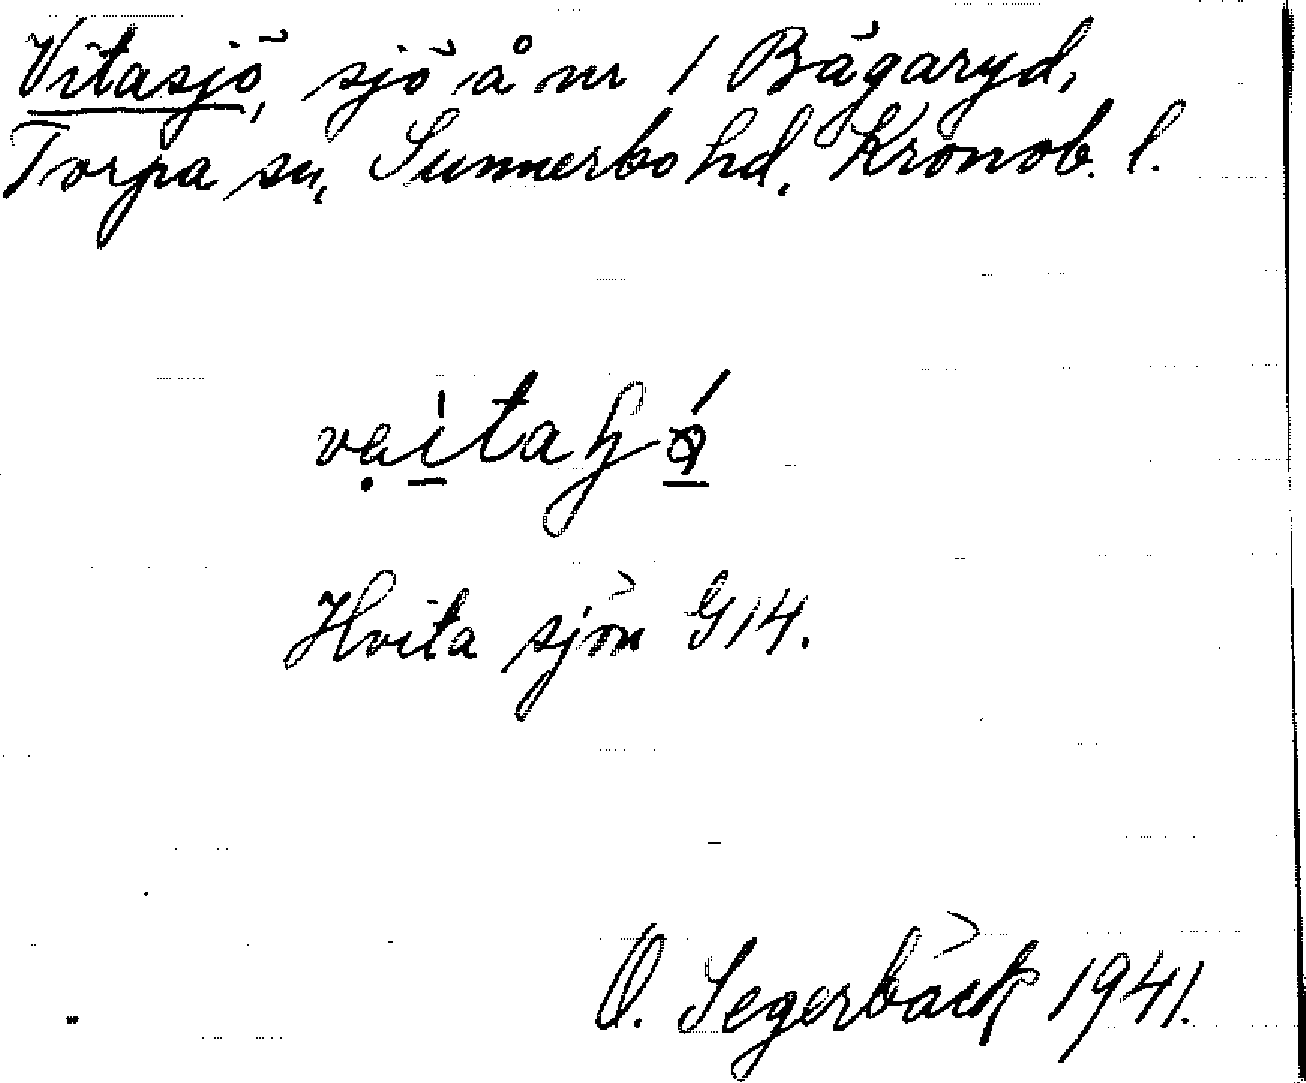 Vitasjö, sjö å nr 1 Bägaryd,
Torpa sn, Sunnerbo hd, Kronob. l.
Hvita sjön G 14.
O. Segerbäck 1941.